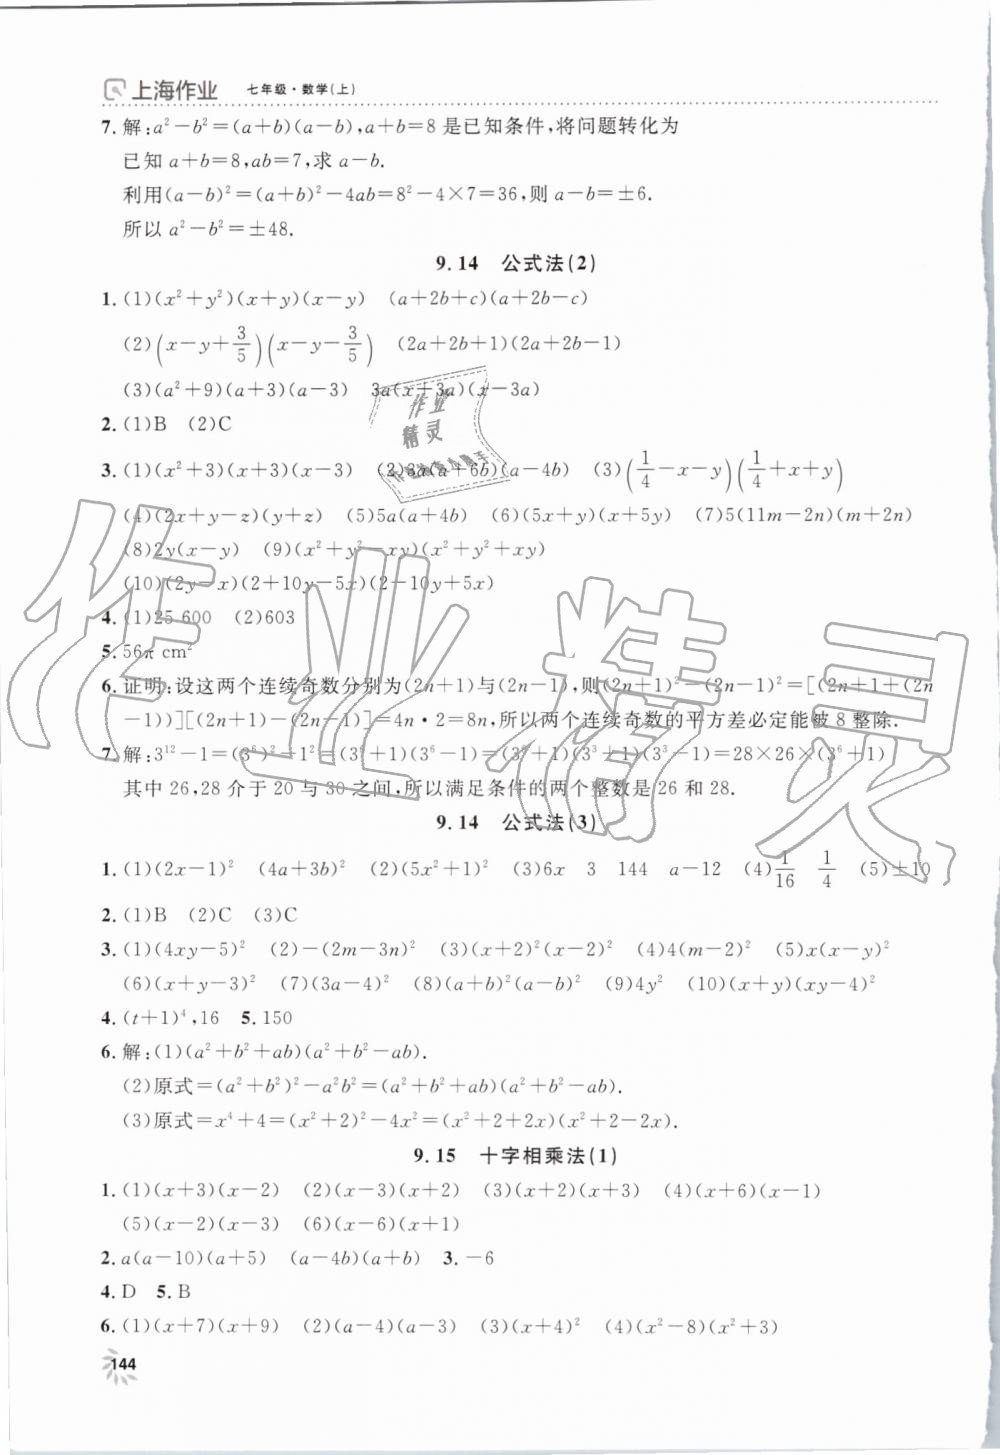 上海作业 七年级·数学(上)
7.解:a²-b²=(a+b)(a-b),a+b=8是已知条件,将问题转化为
已知a+b=8,ab=7,求a-b.
利用(a-b)²=(a+b)²-4ab=8²-4×7=36,则a-b=±6.
所以a²-b²=±48.
9.14 公式法(2)
1.(1)(x²+y²)(x+y)(x-y) (a+2b+c)(a+2b-c)
(2)(x-y+3/5)(x-y-3/5) (2a+2b+1)(2a+2b-1)
(3)(a²+9)(a+3)(a-3) 3a(x+3a)(x-3a)
2.(1)B (2)C
3.(1)(x²+3)(x+3)(x-3) (2)3a(a+6b)(a-4b) (3)(1/4-x-y)(1/4+x+y)
(4)(2x+y-z)(y+z) (5)5a(a+4b) (6)(5x+y)(x+5y) (7)5(11m-2n)(m+2n)
(8)2y(x-y) (9)(x²+y²-xy)(x²+y²+xy)
(10)(2y-x)(2+10y-5x)(2-10y+5x)
4.(1)25 600 (2)603
5.56π cm²
6.证明:设这两个连续奇数分别为(2n+1)与(2n-1),则(2n+1)²-(2n-1)²=[(2n+1+(2n
-1))][(2n+1)-(2n-1)]=4n·2=8n,所以两个连续奇数的平方差必定能被8整除.
7.解:3¹²-1=(3⁶)²-1²=(3⁶+1)(3⁶-1)=(3⁶+1)(3³+1)(3³-1)=28×26×(3⁶+1)
其中26,28介于20与30之间,所以满足条件的两个整数是26和28.
9.14 公式法(3)
1.(1)(2x-1)² (4a+3b)² (2)(5x²+1)² (3)6x 3 144 a-12 (4)1/16 1/4 (5)±10
2.(1)B (2)C (3)C
3.(1)(4xy-5)² (2)-(2m-3n)² (3)(x+2)²(x-2)² (4)4(m-2)² (5)x(x-y)²
(6)(x+y-3)² (7)(3a-4)² (8)(a+b)²(a-b)² (9)4y² (10)(x+y)(xy-4)²
4.(t+1)⁴,16 5.150
6.解:(1)(a²+b²+ab)(a²+b²-ab).
(2)原式=(a²+b²)²-a²b²=(a²+b²+ab)(a²+b²-ab).
(3)原式=x⁴+4=(x²+2)²-4x²=(x²+2+2x)(x²+2-2x).
9.15 十字相乘法(1)
1.(1)(x+3)(x-2) (2)(x-3)(x+2) (3)(x+2)(x+3) (4)(x+6)(x-1)
(5)(x-2)(x-3) (6)(x-6)(x+1)
2.a(a-10)(a+5) (a-4b)(a+b) 3.-6
4.D 5.B
6.(1)(x+7)(x+9) (2)(a-4)(a-3) (3)(x+4)² (4)(x²-8)(x²+3)
144
作业精灵
作业
精灵